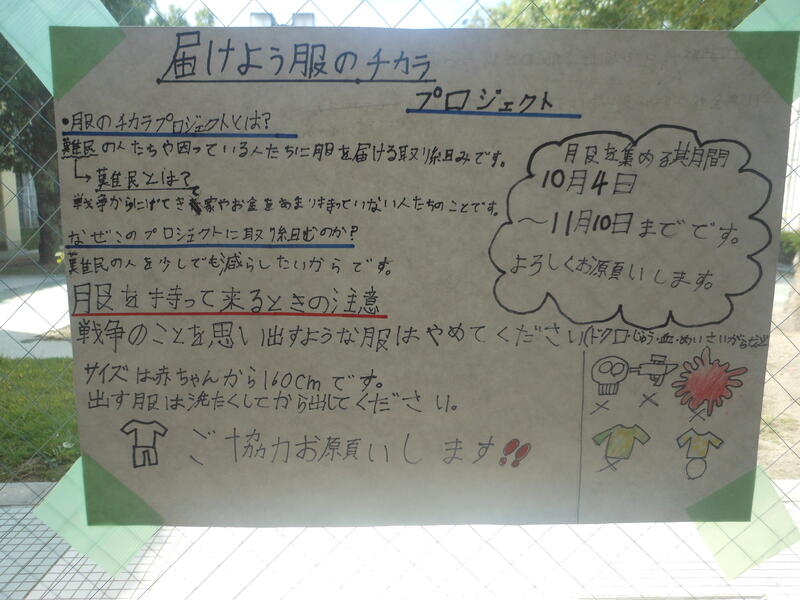 届けよう服のチカラ
プロジェクト
・服のチカラプロジェクトとは?
難民の人たちや困っている人たちに服を届ける取り組みです。
難民とは?
戦争からにげてきて家やお金をあまり持っていない人たちのことです。
なぜこのプロジェクトに取り組むのか?
難民の人を少しでも減らしたいからです。
服を集める期間
10月4日
〜11月10日までです。
よろしくお願いします。
服を持って来るときの注意
戦争のことを思い出すような服はやめてください(ドクロ・じゅう・血・めいさいがらなど)
サイズは赤ちゃんから160cmです。
出す服は洗たくしてから出してください。
ご協力お願いします